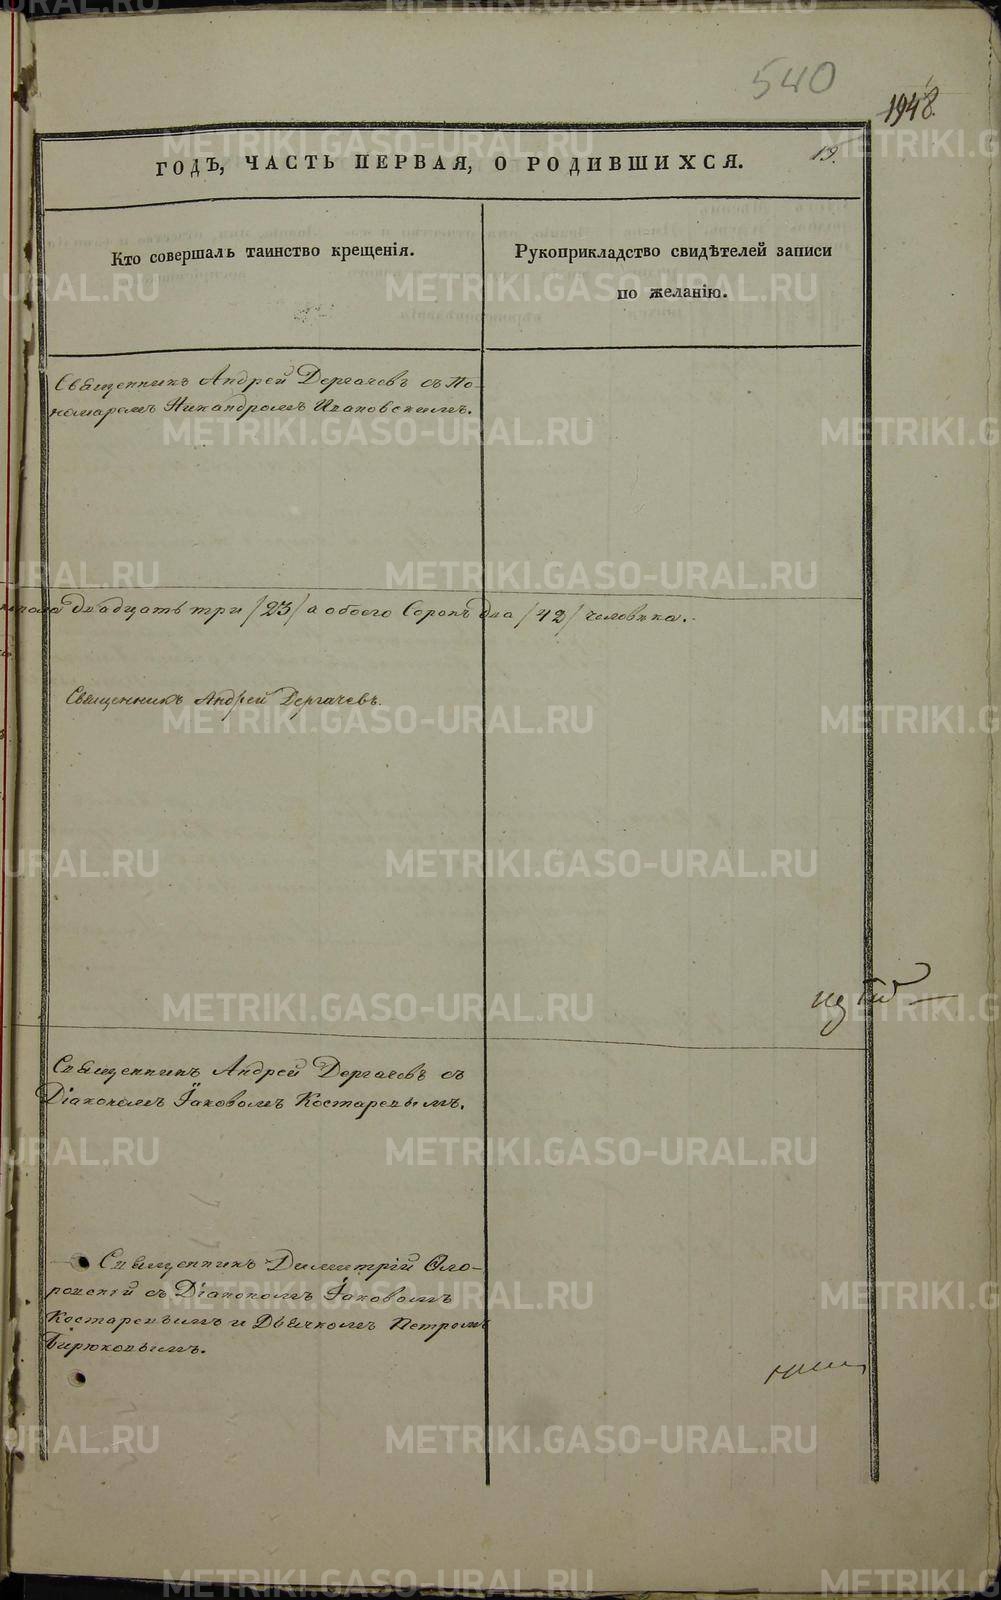 540
1948.
19.
ГОДЪ, ЧАСТЬ ПЕРВАЯ, О РОДИВШИХСЯ.
Кто совершалъ таинство крещенія.
Рукоприкладство свидѣтелей записи
по желанію.
Священникъ Андрей Дергачевъ съ По-
номаремъ Никандромъ Ивановскимъ.
двадцать три /23/ а обоего Сорокъ два /42/ человѣка.
Священникъ Андрей Дергачевъ.
Священникъ Андрей Дергачевъ съ
Діакономъ Іаковомъ Костаревымъ.
Священникъ Димитрій
съ Діакономъ Іаковомъ
Костаревымъ и Дьячкомъ Петромъ
Бирюковымъ.
METRIKI.GASO-URAL.RU